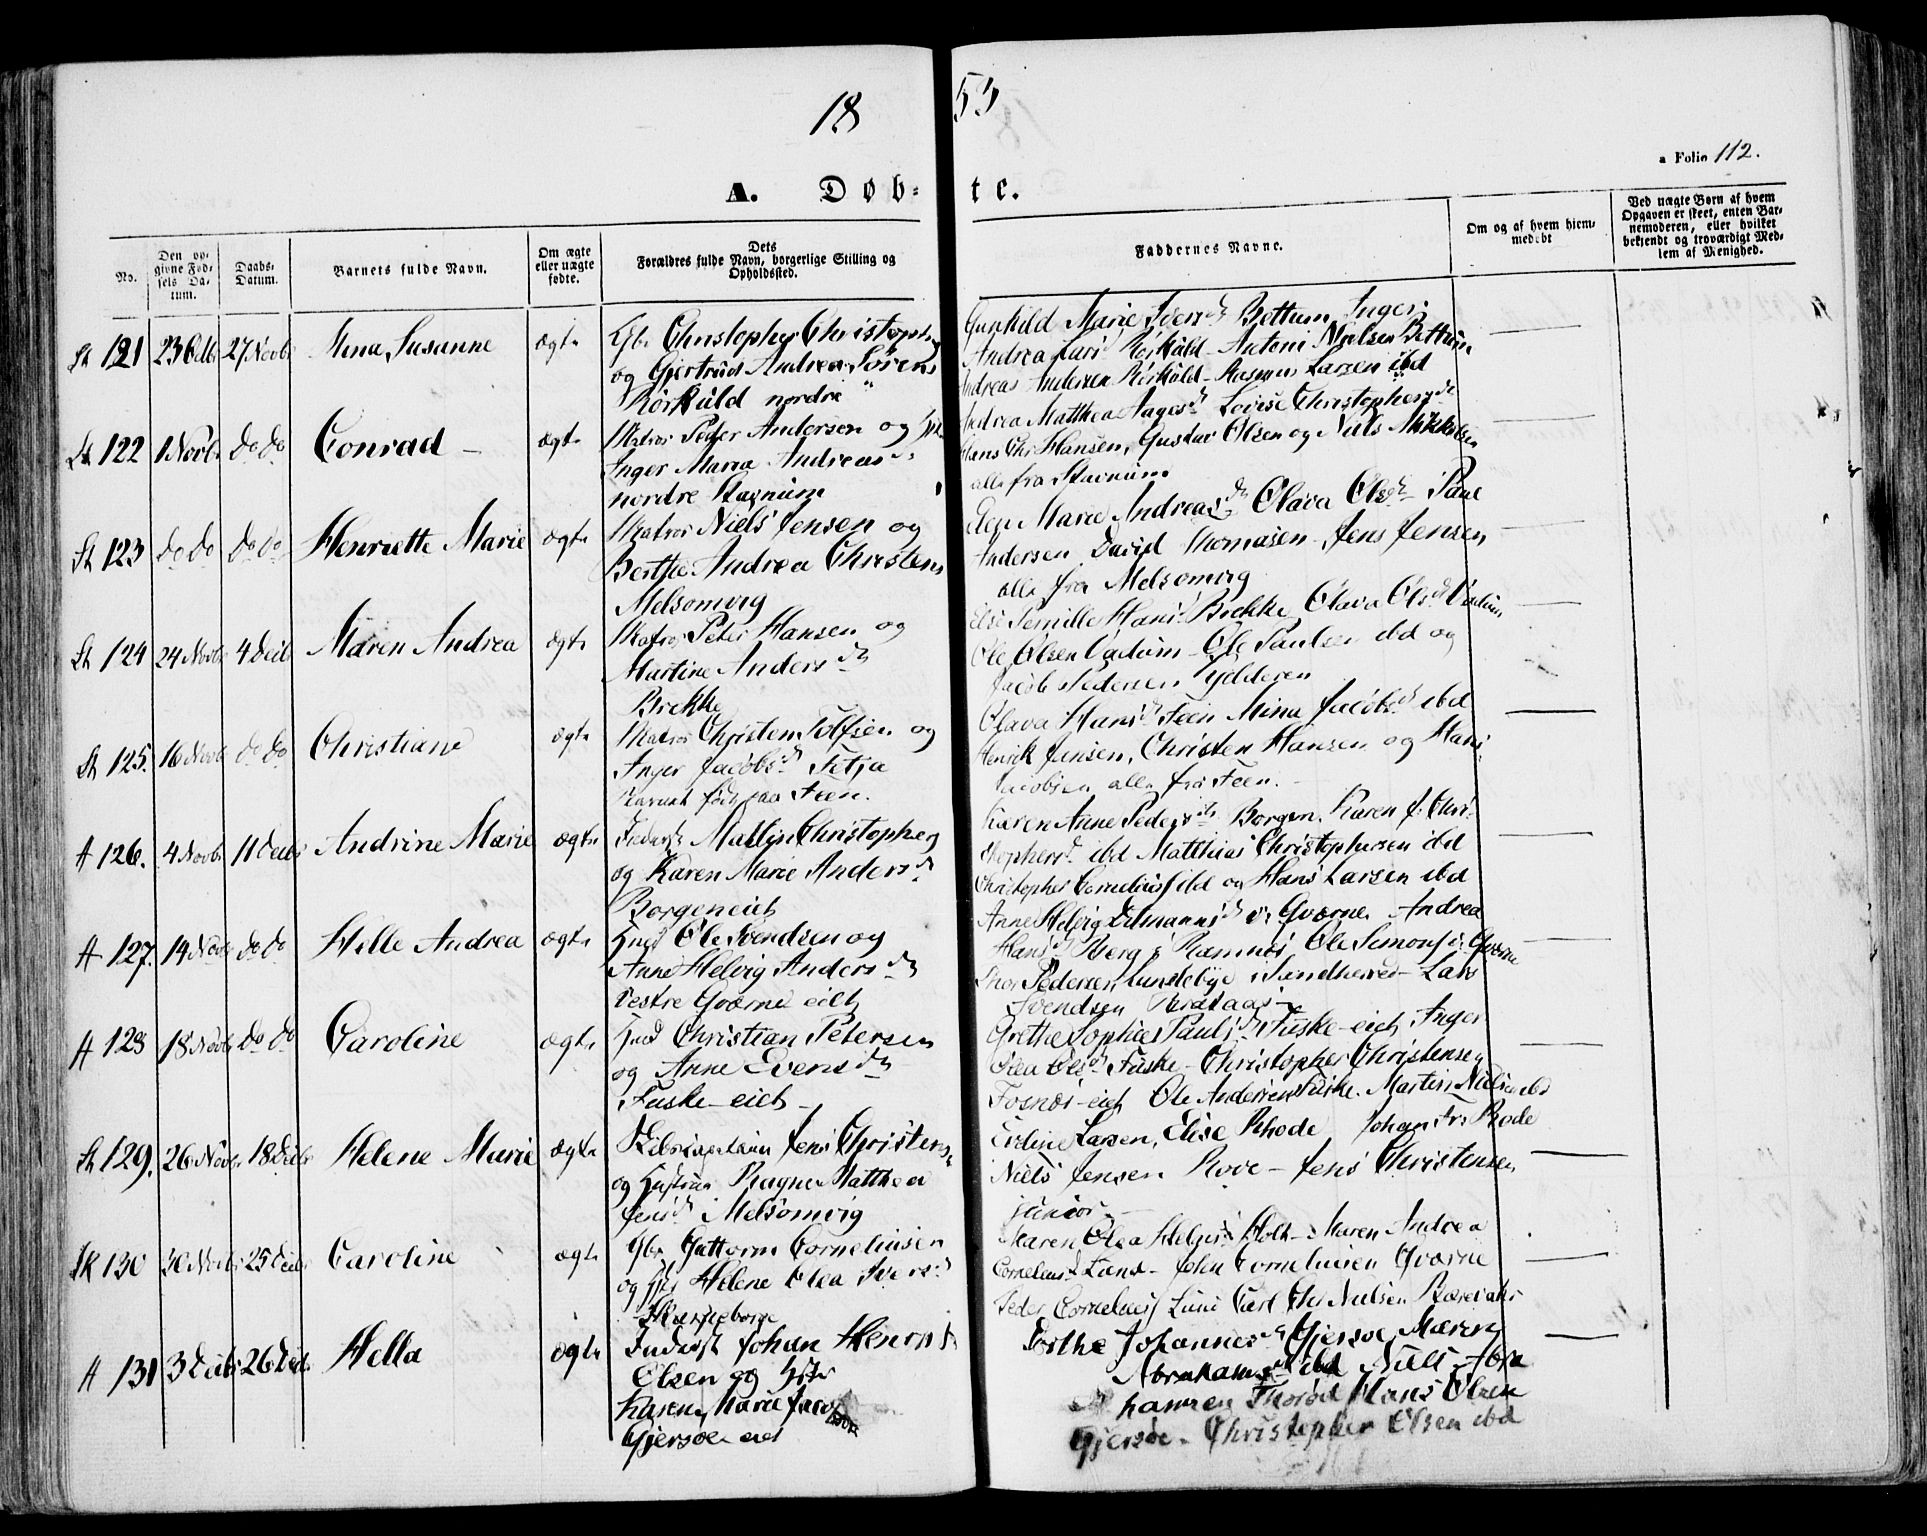 18 53
a Folio 112.
A. Døb- te.
No.
Den opgivne Fødsels Datum.
Daabs-Datum.
Barnets fulde Navn.
Om ægte eller uægte fødte.
Dets Forældres fulde Navn, borgerlige Stilling og Opholdssted.
Faddernes Navne.
Om og af hvem hjemmedøbt
Ved uægte Børn af hvem Opgaven er skeet, enten Barnemoderen, eller hvilket bekjendt og troværdigt Medlem af Menighed.
St 121 23 27 Novbr Mina Susanne ægte Gbr Christopher Christophers
og Gjertrud Andrea Sørens
nordre
Gunhild Marie Iversd Bettum Inger
Andrea Antoni Nielsen Bettum
Andreas Andersen Rasmus Larsen ibd
St 122 1 Novbr do do Conrad ægte Matros Peder Andersen og
Inger Maria Andreasd
nordre Stagnum
Andrea Matthea Aagesd Lovise Christophersd
Hans Chr Hansen, Gustav Olsen og Niels Mikkelsen
alle fra Stagnum
St 123 do do do do Henriette Marie ægte Matros Niels Jensen og
Berthe Andrea Christens
Melsomvig
Marie Andreasd Olava Olsd Paul
Andersen David Thomasen Jens Jensen
alle fra Melsomvig
St 124 24 Novbr 4 Decbr Maren Andrea ægte Matros Peter Hansen og
Martine Andersd
Brekke
Else Pernille Hansd Brekke, Olava Olsd Vadum
Ole Olsen Vadum - Ole Paulsen ibd og
Jacob Pedersen
St 125. 16 Novb do do Christiane ægte Matros Christen Tollfsen og
Inger Jacobsd
født paa Feen.
Olava Hansd Feen Mina Jacobsd ibd
Henrik Jensen, Christen Hansen og Hans
Jacobsen alle fra Feen.
A 126. 4 Novbr 11 Decbr Andrine Marie ægte Inderst Mathis Christophers
og Karen Marie Andersd
Borgeneiet
Karen Anne Pedersd Borgen. Karen J. Chri-
stophersd ibd Matthias Christophersen ibd
Christopher Corneliusf ibd og Hans Larsen ibd
A 127. 14 Novbr do do Helle Andrea ægte Ole Svendsen og
Anne Helvig Andersd
Vestre Qværne eiet
Anne Helvig Qværne Andrea
Hansd Berg i Ramnes Ole Simonsf i Qværne
Thor Pedersen i Sandherred - Lars
Svendsen
A 128 18 Novbr do do Caroline ægte Christian Petersen
og Anne Evensd
Fuske-eiet
Grethe Sophie Paulsd Fuske-eiet Inger
Olea Olsd Fuske - Christopher Christensen
Fosnes-eiet Ole Andersen Fuske. Martin Nielsen ibd
St 129. 26 Novbr 18 Decbr Helene Marie ægte Jens Christens
og Hustrue Ragna Matthea
Jensd Melsomvig
Larsen, Elise Rhode Johan Fr. Rode
Niels Jensen Rove - Jens Christensen
junior
Sk 130 30 Novbr 25 Decbr Caroline ægte Gbr Guttorm Corneliusen
og Helene Olea Iversd
Maren Olea Helgesd Holt - Maren Andrea
Corneliusd Lund - John Corneliusen Qværne
Peder Corneliusf Lund Carl Chr Nielsen
A 131 3 Decbr 26 Decbr Hella ægte Inderst Johan Henrik
Olsen og Hst
Karen Marie Jacobs
Gjersøe eiet
Berthe Johannesd Gjersøe, Maren
Abrahamsd ibd Niels Abra
hamsen Hans Olsen
Gjersøe - Christopher Olsen ibd